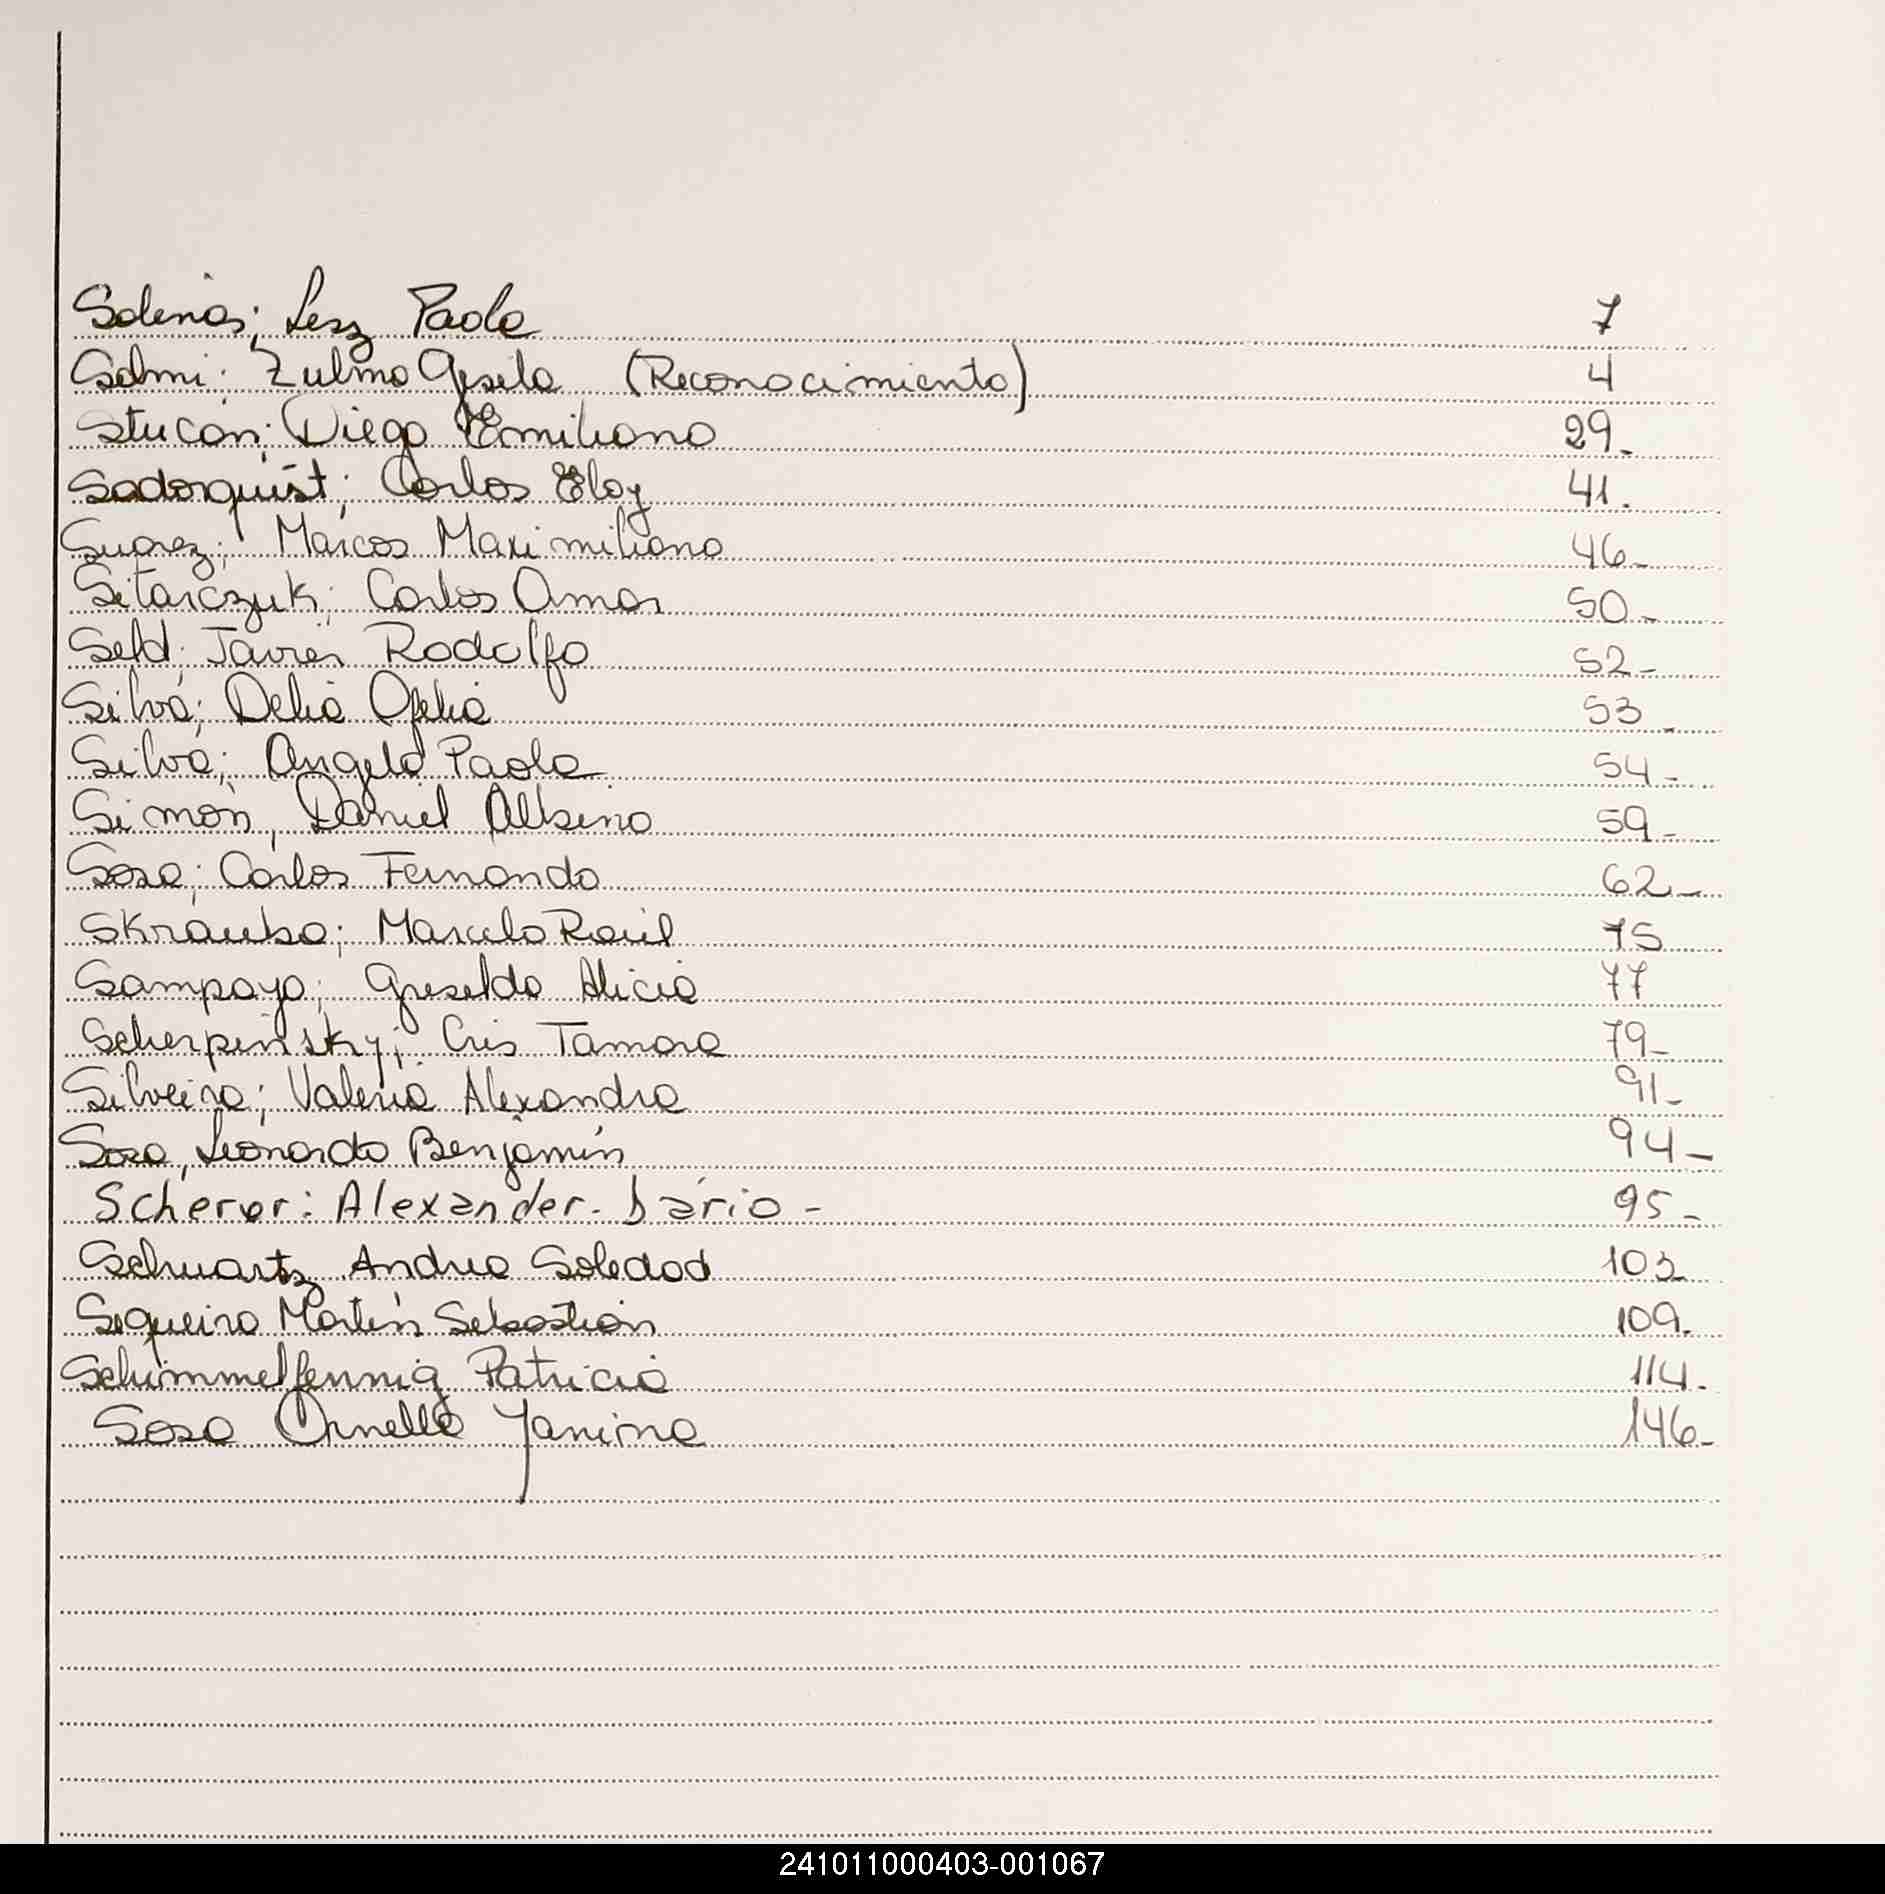 Salinas; Lesz Paola 7
Salmi: Zulma Gisela (Reconocimiento) 4
Stucan; Diego Emiliano 29.
Sadorquist; Carlos Eloy 41.
Suarez; Marcos Maximiliano 46-
Sitarczuk; Carlos Omar 50-
Seld; Javier Rodolfo 52-
Silva; Delia Ofelia 53-
Silva; Angela Paola 54-
Simón, Daniel Albino 59-
Sosa; Carlos Fernando 62-
Skrauba; Marcelo Raúl 75
Sampayo; Griselda Alicia 77
Scherpinsky; Cris Tamara 79-
Silveira; Valeria Alexandra 91-
Sosa, Leonardo Benjamín 94-
Scherer: Alexander. Dario- 95-
Schwartz Andrea Soledad 103
Siqueira Martín Sebastián 109.
Schimmelfennig Patricia 114.
Sosa Ornella Yanina 146-
241011000403-001067